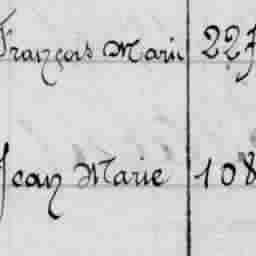 François Marie 227
Jean Marie 108